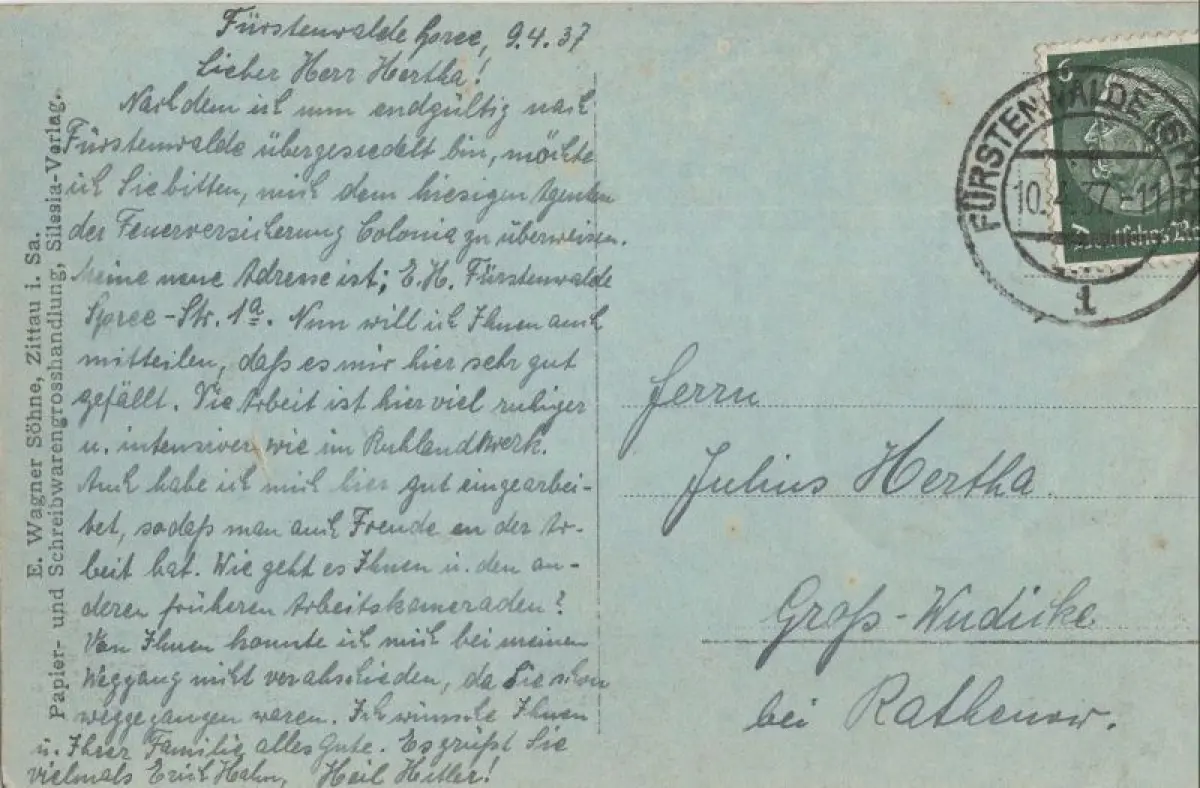 Fürstenwalde Spree, 9.4.37
Lieber Herr Hertha!
Nachdem ich nun endgültig nach
Fürstenwalde übergesiedelt bin, möchte
ich Sie bitten, mich dem hiesigen Agenten
der Feuerversicherung Colonia zu überweisen.
Meine neue Adresse ist; E.H. Fürstenwalde
Spree-Str. 1a. Nun will ich Ihnen auch
mitteilen, daß es mir hier sehr gut
gefällt. Die Arbeit ist hier viel ruhiger
u. intensiver wie im
Auch habe ich mich hier gut eingearbei-
tet, sodaß man auch Freude an der Ar-
beit hat. Wie geht es Ihnen u. den an-
deren früheren Arbeitskameraden?
Von Ihnen konnte ich mich bei meinen
Weggang nicht verabschieden, da Sie schon
weggegangen waren. Ich wünsche Ihnen
u. Ihrer Familie alles Gute. Es grüßt Sie
vielmals Erich Hahn, Heil Hitler!
E. Wagner Söhne, Zittau i. Sa.
Papier- und Schreibwarengrosshandlung, Silesia-Verlag.
6
Deutsches
FÜRSTENWALDE (SPREE
10.4.37.-11
1
Herrn
Julius Hertha
Groß-Wudicke
bei Rathenow.